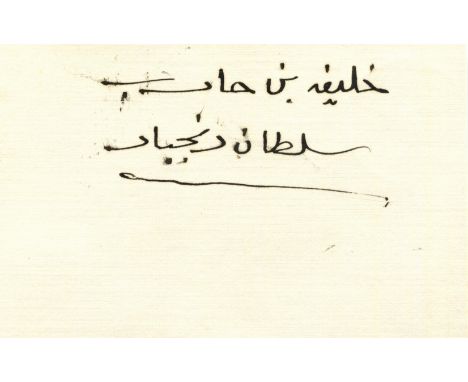 خليفه بن حارب
سلطان زنجبار